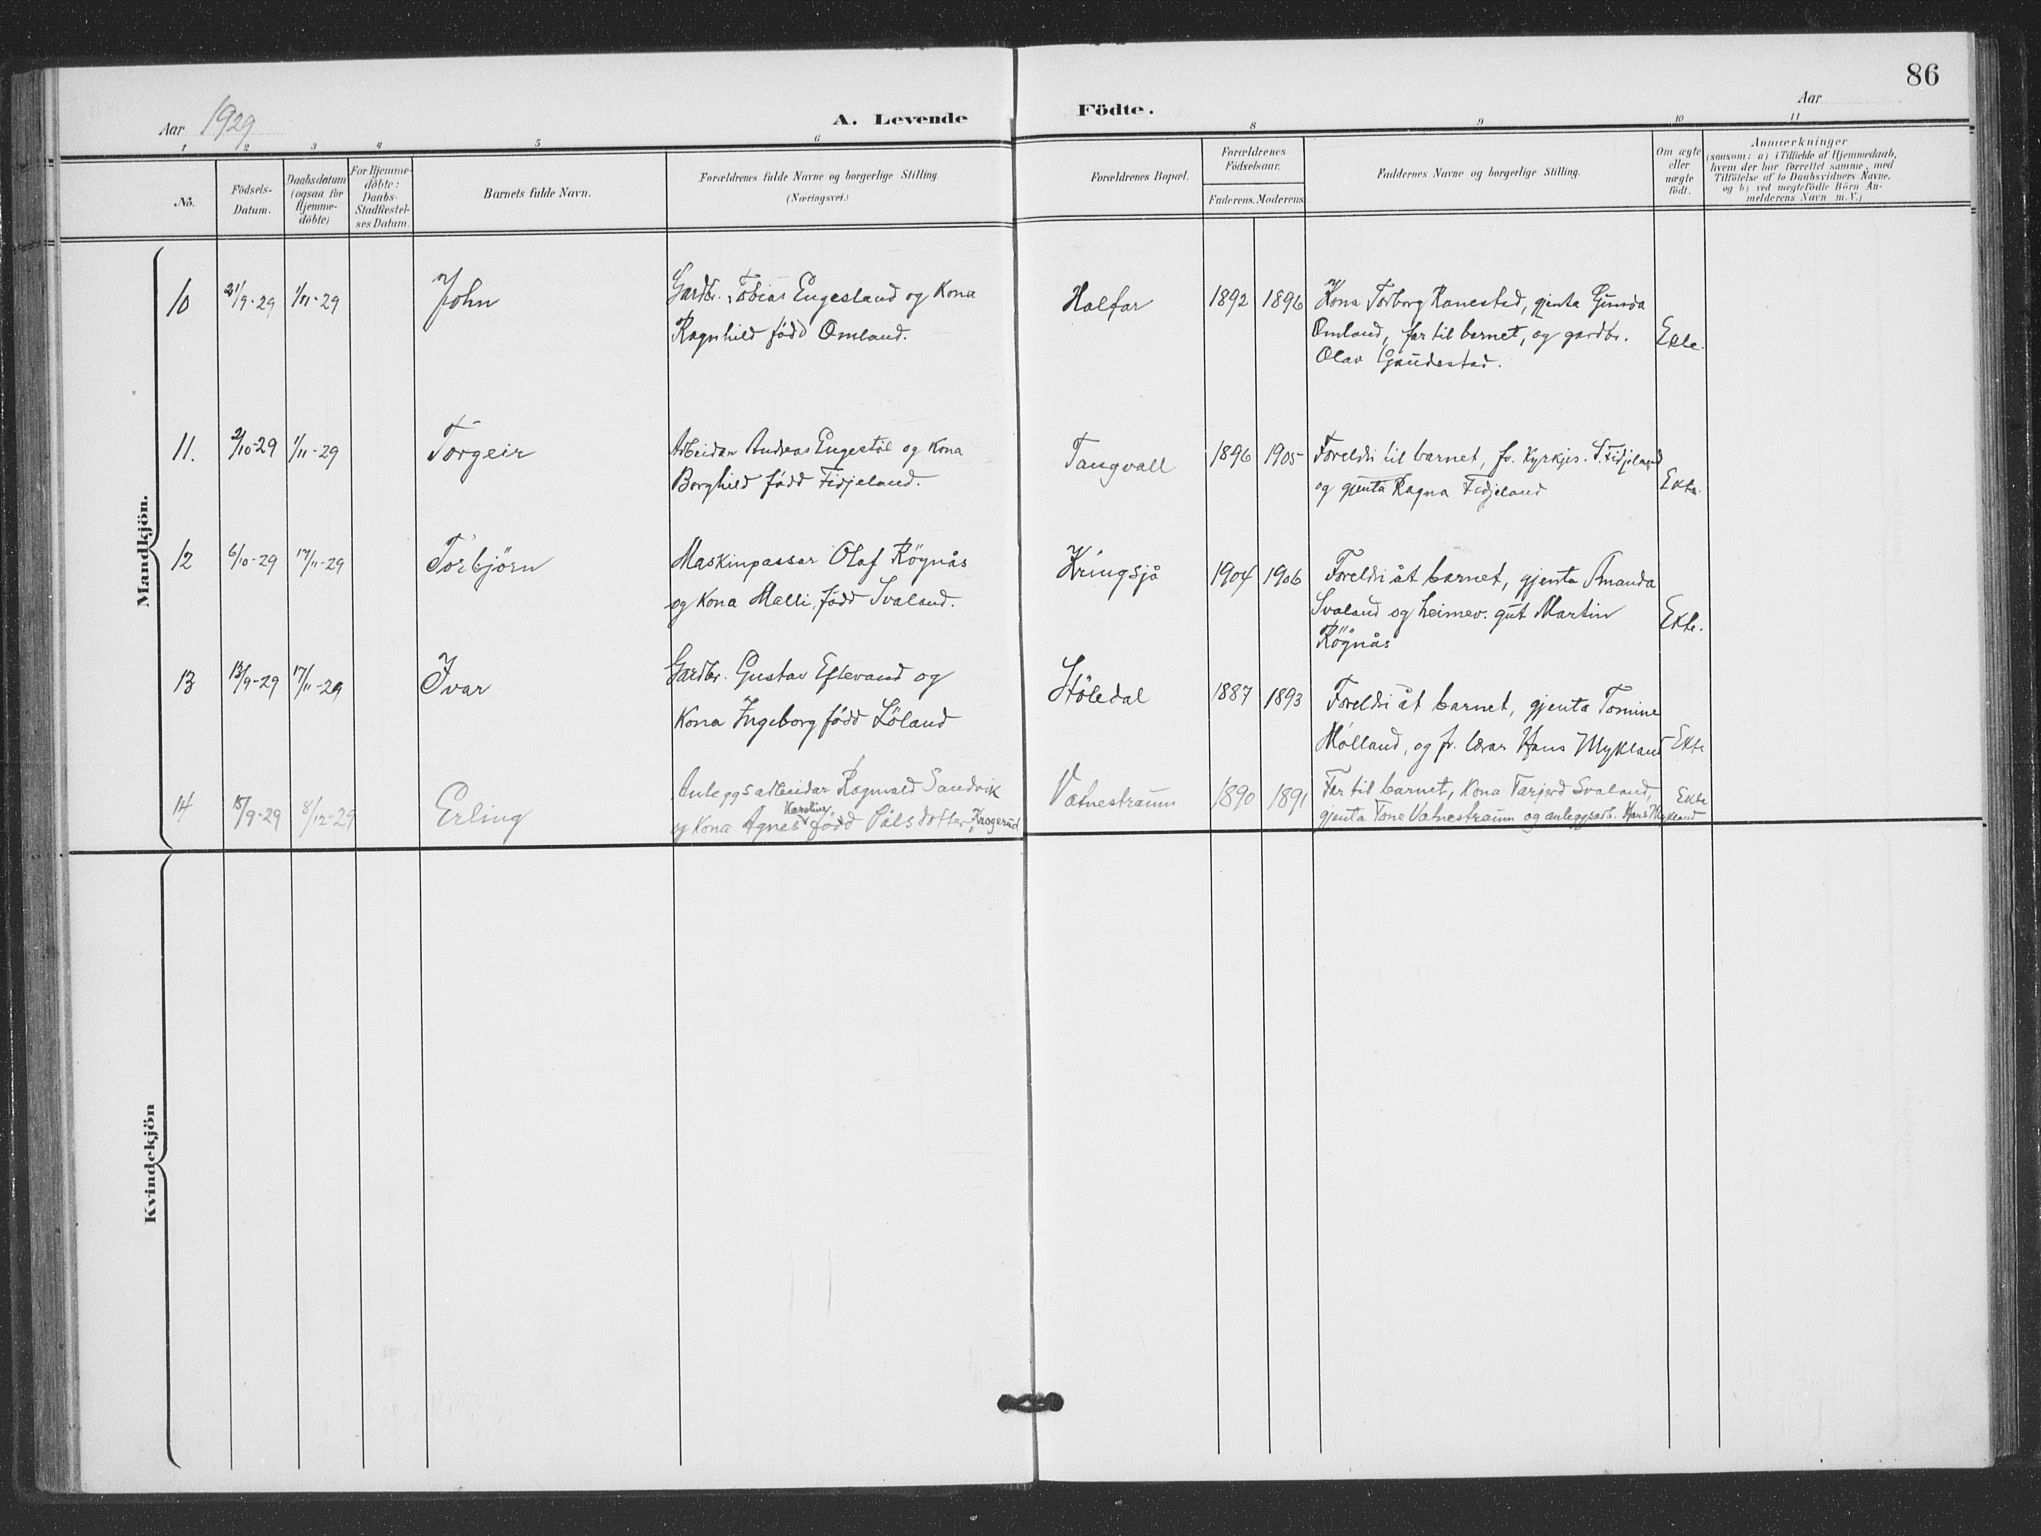 86
Aar 1929
A. Levende Födte.
Aar
1 2 3 4 5 6 8 9 10 11
No.
Födsels-
Datum.
Daabsdatum
(ogsaa for
Hjemme-
döbte)
For Hjemme-
döbte:
Daabs-
Stadfæstel-
ses Datum.
Barnets fulde Navn.
Forældrenes fulde Navne og borgerlige Stilling.
(Næringsvei.)
Forældrenes Bopæl.
Forældrenes
Födselsaar.
Faderens. Moderens.
Faddernes Navne og borgerlige Stilling.
Om ægte
eller
uægte
födt.
Anmærkninger
(saasom: a) i Tilfælde af Hjemmedaab,
hvem der har forrettet samme, med
Tilföielse af to Daabsvidners Navne,
og b) ved uægtefödte Börn An-
melderens Navn m. V.)
Mandkjön.
10 21/9-29 1/11-29 John
Gardbr. Tobias Engesland og Kona
Ragnhild född Omland.
Halfar 1892 1896
Kona Torborg Ranestad, gjenta Gunda
Omland, far til barnet, og gardbr.
Olav Gaudestad.
Ekte.
11. 2/10-29 1/11-29 Torgeir
Arbeidar Andreas Engestöl og Kona
Borghild född Fidjeland.
Tangvall 1896 1905
Foreldri til barnet, fv. Kyrkjes. S. Fidjeland
og gjenta Ragna Fidjeland
Ekte.
12 6/10-29 17/11-29 Torbjörn
Maskinpassar Olaf Rögnås
og Kona Malli, född Svaland.
Kringsjå 1904 1906
Foreldri åt barnet, gjenta Amanda
Svaland og heimev. gut Martin
Rögnås
Ekte.
13 13/9-29 17/11-29 Ivar
Gardbr. Gustav Eftevand og
Kona Ingeborg född Löland
Stöledal 1887 1893
Foreldri åt barnet, gjenta Tomine
Mölland, og fv. lærar Hans Mykland
Ekte
14 15/9-29 8/12-29 Erling
Anleggsarbeidar Ragnvald Sandvik
og Kona Agnes Karoline född Pålsdotter Kragerud
Vatnestraum 1890 1891
Far til barnet, Kona Tarjerd Svaland,
gjenta Tone Vatnestraum og anleggsarb. Hans Mykland
Ekte
Kvindekjön